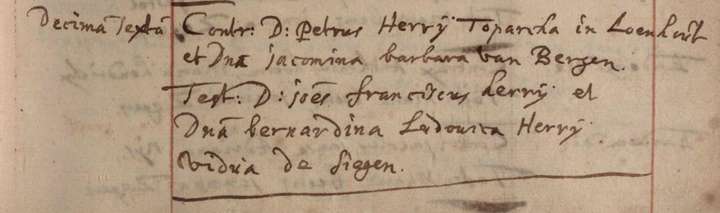 Decima Sexta
Contr: D: Petrus Herrÿ Toparcha in Loenhout
et Dna jacomina barbara van Bergen.
Test: D: joēs franciscus herrÿ et
Dnā bernardina Ludovica Herrÿ
vidua de Siegen.